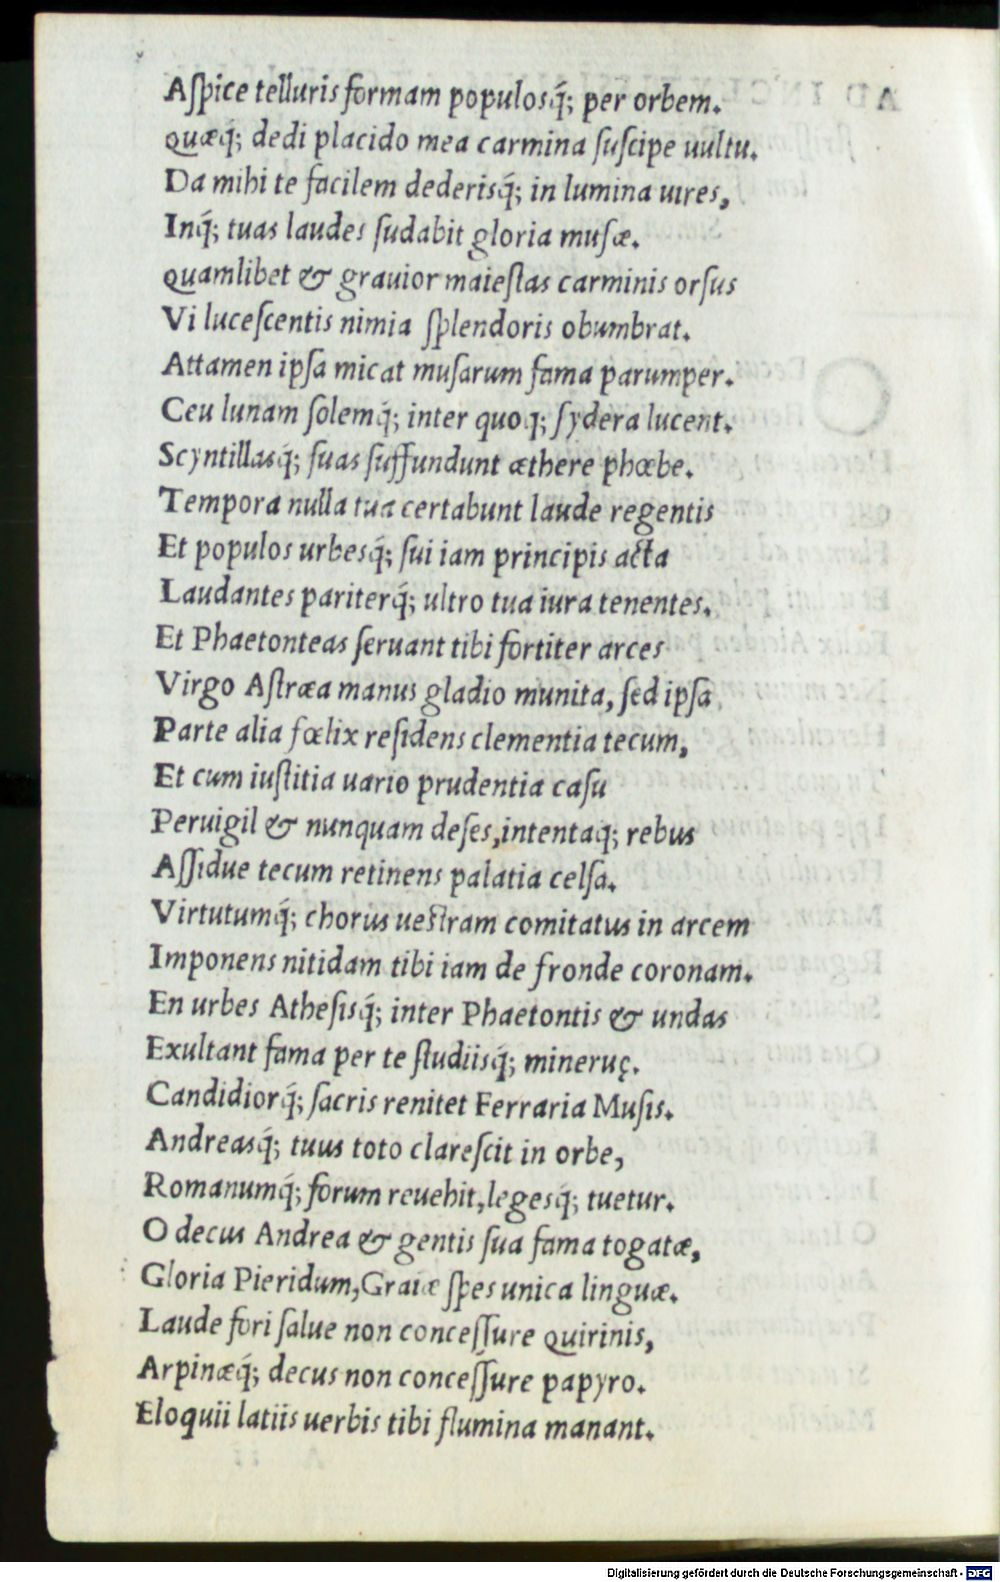 Aſpice telluris formam populosq́; per orbem.
quæq́; dedi placido mea carmina ſuſcipe uultu.
Da mihi te facilem dederisq́; in lumina uires,
Inq́; tuas laudes ſudabit gloria muſæ.
quamlibet & grauior maieſtas carminis orſus
Vi luceſcentis nimia ſplendoris obumbrat.
Attamen ipſa micat muſarum fama parumper.
Ceu lunam ſolemq́; inter quoq; ſydera lucent.
Scyntillasq́; ſuas ſuffundunt æthere phœbe.
Tempora nulla tua certabunt laude regentis
Et populos urbesq́; ſui iam principis acta
Laudantes pariterq́; ultro tua iura tenentes.
Et Phaetonteas ſeruant tibi fortiter arces
Virgo Aſtræa manus gladio munita, ſed ipſa
Parte alia fœlix reſidens clementia tecum,
Et cum iuſtitia uario prudentia caſu
Peruigil & nunquam deſes,intentaq́; rebus
Aſſidue tecum retinens palatia celſa.
Virtutumq́; chorus ueſtram comitatus in arcem
Imponens nitidam tibi iam de fronde coronam.
En urbes Atheſisq́; inter Phaetontis & undas
Exultant fama per te ſtudiisq́; mineruę.
Candidiorq́; ſacris renitet Ferraria Muſis.
Andreasq́; tuus toto clareſcit in orbe,
Romanumq́; forum reuehit,legesq́; tuetur.
O decus Andrea & gentis ſua fama togatæ,
Gloria Pieridum,Graiæ ſpes unica linguæ.
Laude fori ſalue non conceſſure quirinis,
Arpinæq́; decus non conceſſure papyro.
Eloquii latiis uerbis tibi flumina manant.
Digitalisierung gefördert durch die Deutsche Forschungsgemeinschaft - DFG